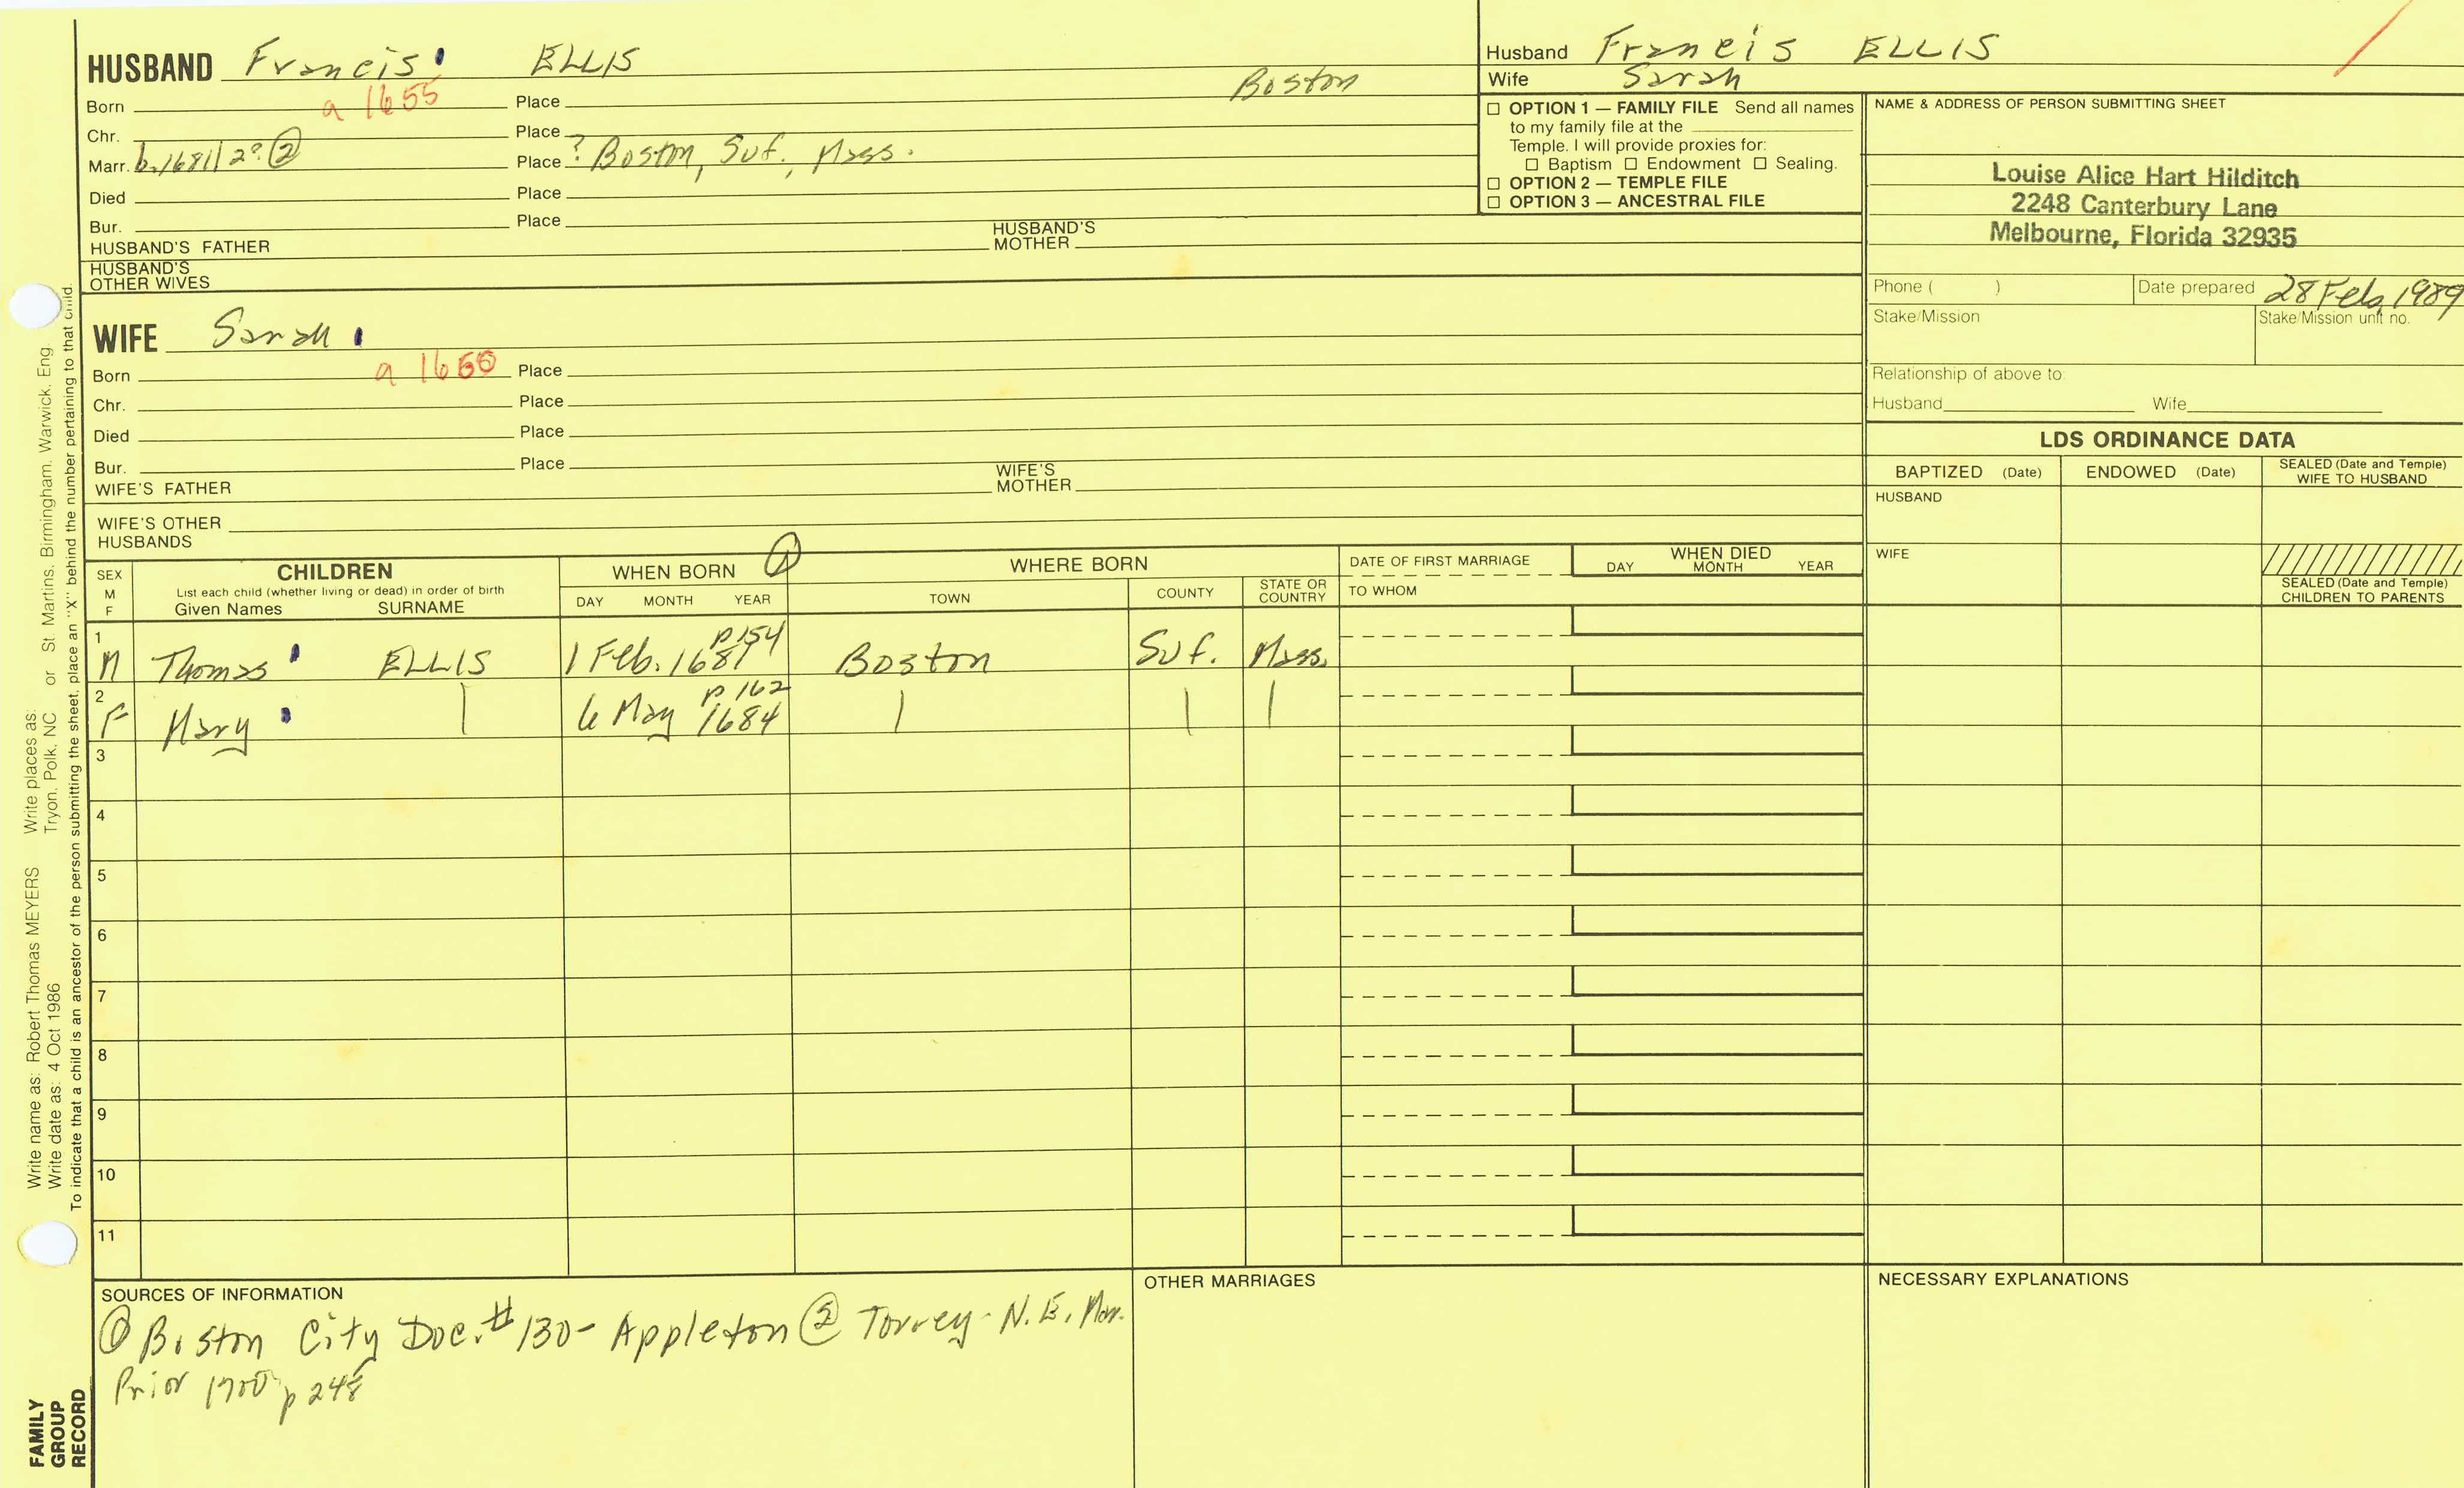 HUSBAND Francis ELLIS
Boston
Born a 1655 Place
Chr. Place
Marr. b. 1681/2? ② Place ? Boston, Suf., Mass.
Died Place
Bur. Place
HUSBAND'S FATHER HUSBAND'S MOTHER
HUSBAND'S OTHER WIVES
Husband Francis ELLIS
Wife Sarah
☐ OPTION 1 — FAMILY FILE Send all names
to my family file at the
Temple. I will provide proxies for:
☐ Baptism ☐ Endowment ☐ Sealing.
☐ OPTION 2 — TEMPLE FILE
☐ OPTION 3 — ANCESTRAL FILE
NAME & ADDRESS OF PERSON SUBMITTING SHEET
Louise Alice Hart Hilditch
2248 Canterbury Lane
Melbourne, Florida 32935
Phone ( ) Date prepared 28 Feb, 1989
Stake/Mission Stake/Mission unit no.
Relationship of above to:
Husband Wife
WIFE Sarah
Born a 1660 Place
Chr. Place
Died Place
Bur. Place
WIFE'S FATHER WIFE'S MOTHER
WIFE'S OTHER HUSBANDS
LDS ORDINANCE DATA
BAPTIZED (Date) ENDOWED (Date) SEALED (Date and Temple) WIFE TO HUSBAND
HUSBAND
WIFE
SEALED (Date and Temple) CHILDREN TO PARENTS
SEX M F
CHILDREN
List each child (whether living or dead) in order of birth
Given Names SURNAME
WHEN BORN ①
DAY MONTH YEAR
WHERE BORN
TOWN COUNTY STATE OR COUNTRY
DATE OF FIRST MARRIAGE
TO WHOM
WHEN DIED
DAY MONTH YEAR
1 M Thomas ELLIS 1 Feb. p 154 Boston Suf. Mass.
2 F Mary | 6 May p 162 1684 | | |
3
4
5
6
7
8
9
10
11
SOURCES OF INFORMATION
① Boston City Doc. # 130 - Appleton ② Torrey - N.E. Mar.
Prior 1700 p 248
OTHER MARRIAGES
NECESSARY EXPLANATIONS
Write name as: Robert Thomas MEYERS Write places as: or St. Martins, Birmingham, Warwick, Eng
Write date as: 4 Oct 1986 Tryon, Polk, NC
To indicate that a child is an ancestor of the person submitting the sheet, place an "X" behind the number pertaining to that child.
FAMILY
GROUP
RECORD